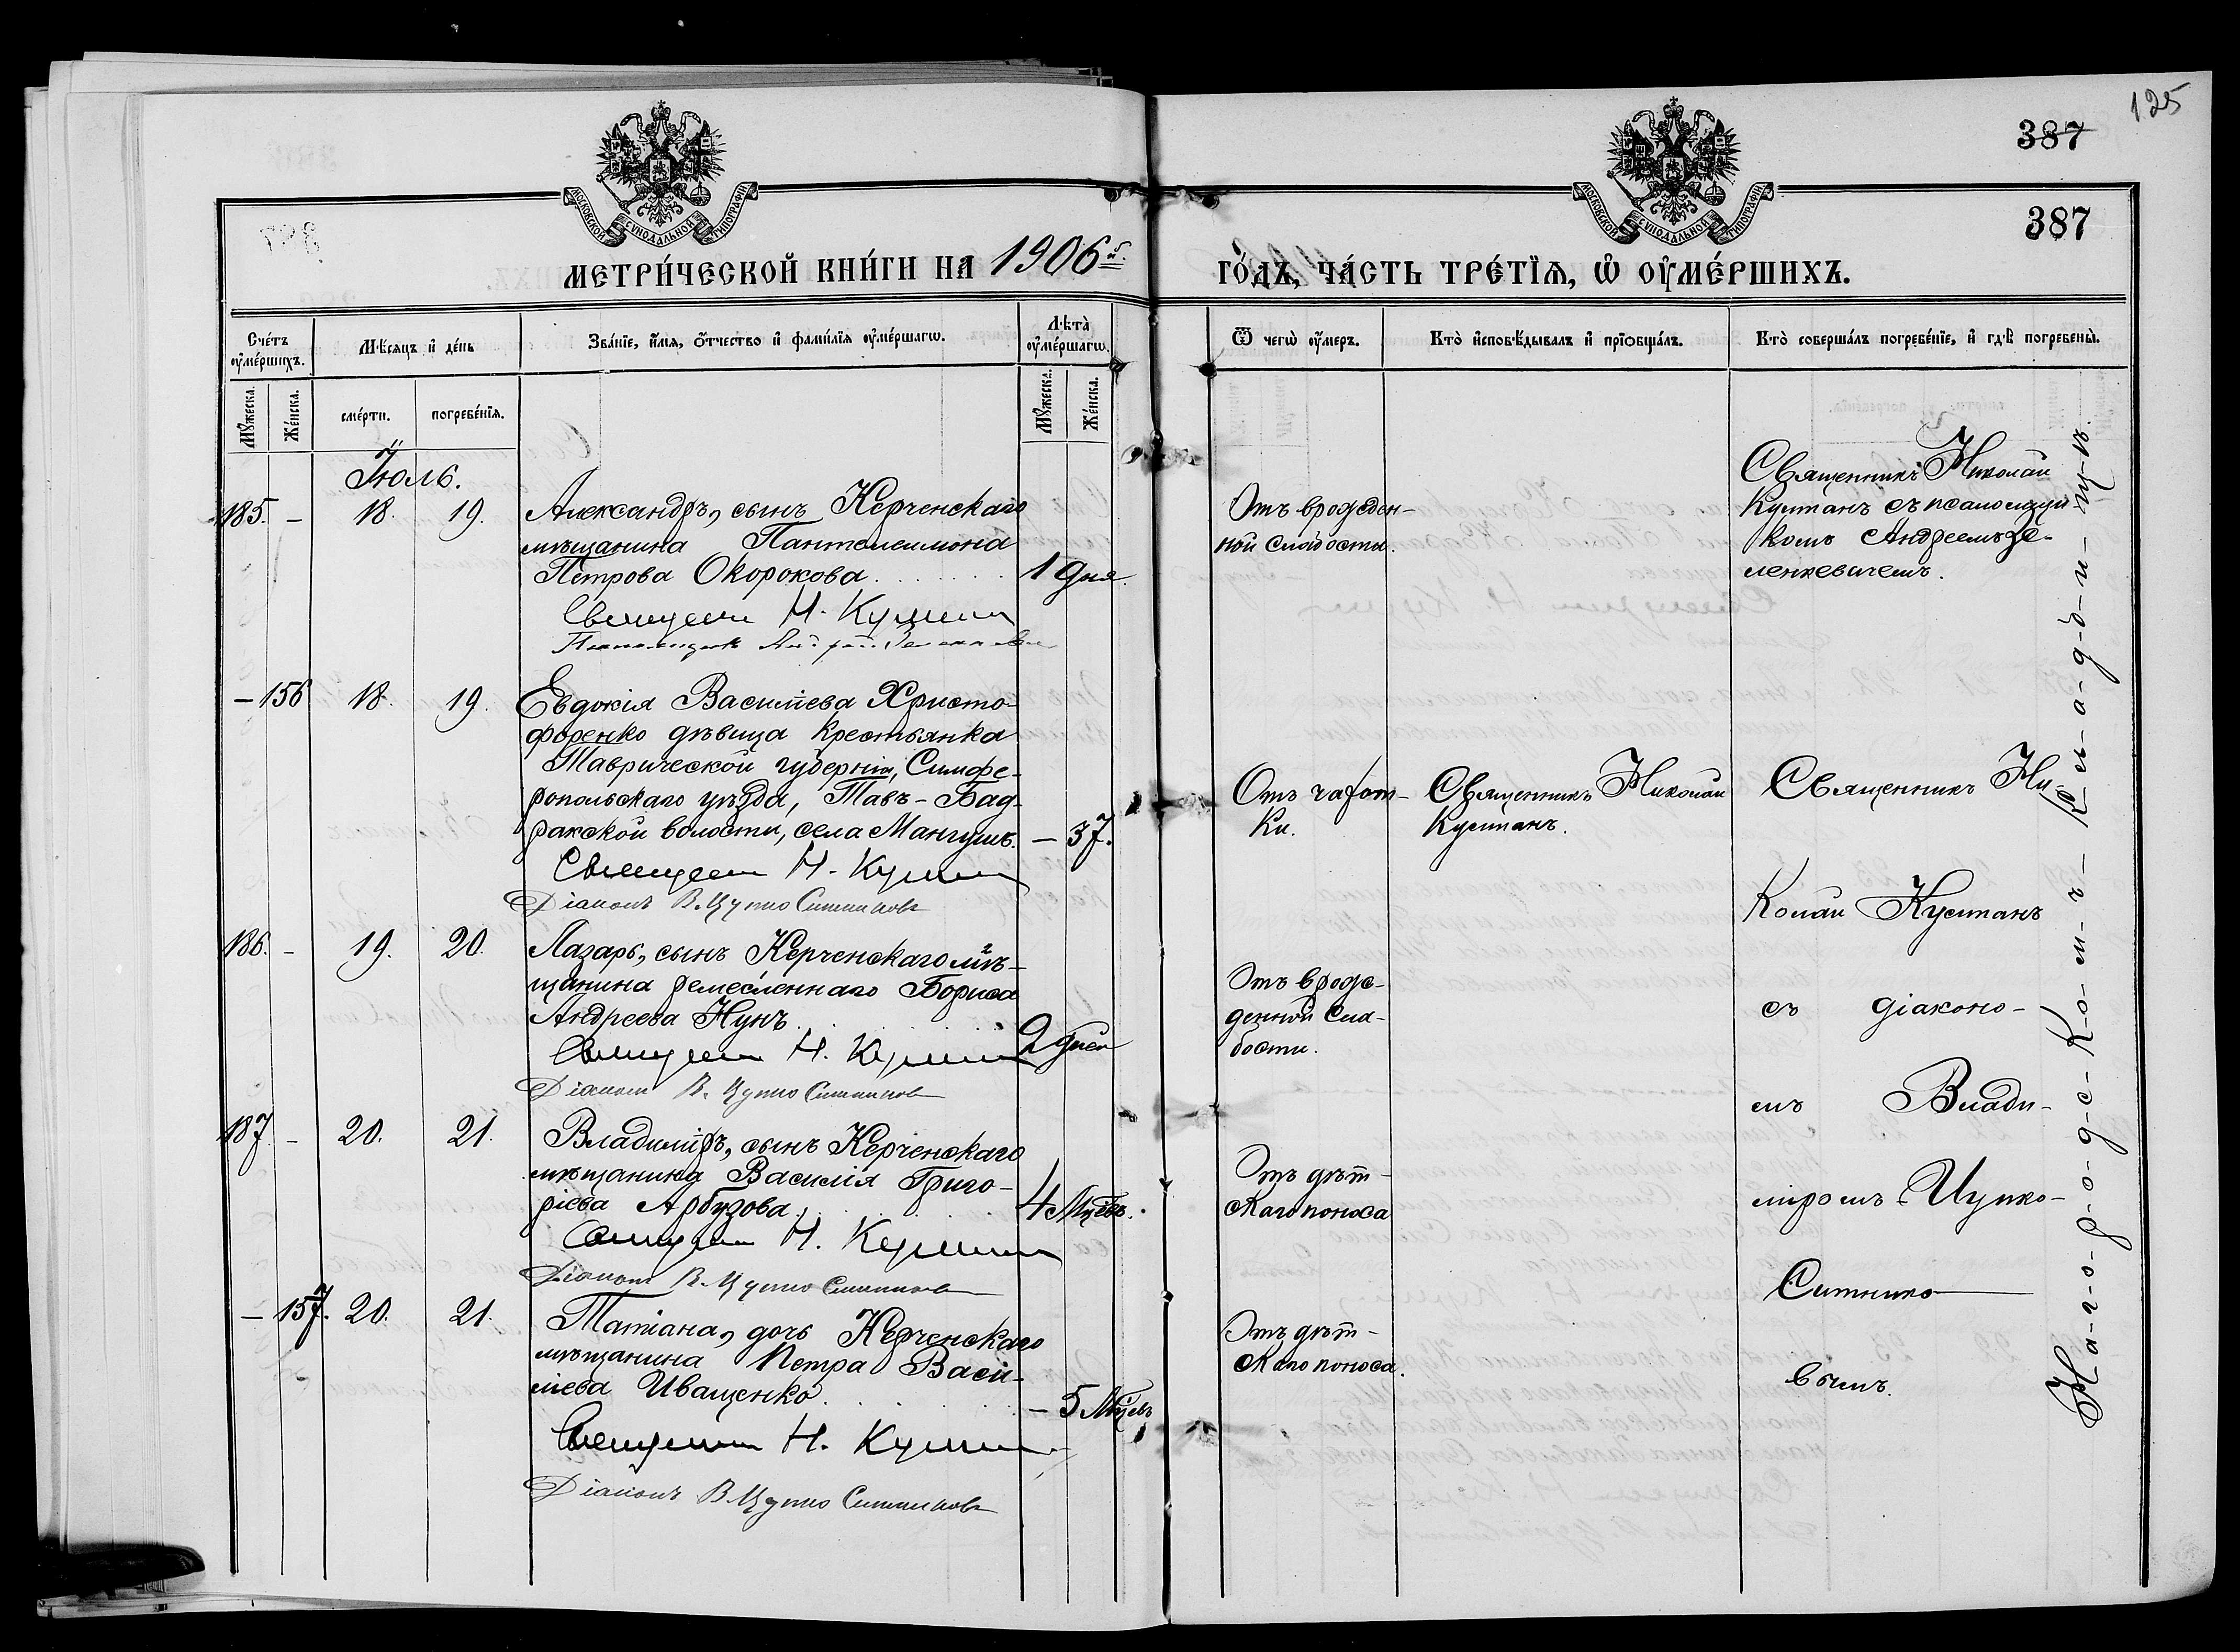 125
387
387
МОСКОВСКОЙ СѴНОДАЛЬНОЙ ТИПОГРАФІИ
МОСКОВСКОЙ СѴНОДАЛЬНОЙ ТИПОГРАФІИ
МЕТРИ́ЧЕСКОЙ КНИ́ГИ НА 1906й
ГО́ДЪ, ЧА́СТЬ ТРЕ́ТІѦ, Ѡ ОУМЕ́РШИХЪ.
Сче́тъ оуме́ршихъ.
Мѣ́сяцъ и де́нь
Зва́нїе, и́мѧ, о́тчество и фами́лїѧ оуме́ршагѡ.
Лѣта̀ оуме́ршагѡ.
Ѿ чегѡ̀ оу́меръ.
Кто̀ исповѣ́дывалъ и прїѡбща́лъ.
Кто̀ соверша́лъ погребе́нїе, и гдѣ̀ погребены̀.
Му́жеска.
Же́нска.
сме́рти.
погребе́нїѧ.
Му́жеска.
Же́нска.
Іюль.
185. - 18. 19.
Александръ, сынъ Керченскаго
мѣщанина Пантелеимона
Петрова Окорокова. 1 дня.
Священник Н. Кустан
Псаломщик
Отъ врожден-
ной слабости.
Священникъ Николай
Кустанъ съ псаломщи
комъ Андреемъ Зе-
ленкевичемъ.
- 156 18. 19.
Евдокія Василіева Христо-
форенко дѣвица крестьянка
Таврической губерніи, Симфе-
ропольскаго уѣзда, Тавъ-Бад-
ракской волости, села Мангушъ. - 37.
Священник Н. Кустан
Діаконъ В. Цупко Ситниковъ
Отъ чахот-
ки.
Священникъ Николай
Кустанъ.
Священникъ Ни-
колай Кустанъ
съ діаконо-
мъ Влади-
міромъ Цупко-
Ситнико-
вымъ.
186. - 19. 20.
Лазарь, сынъ Керченскаго мѣ-
щанина ремесленнаго Бориса
Андреева Нунъ. 2 дней
Священник Н. Кустан
Діаконъ В. Цупко Ситников
Отъ врож-
денной сла-
бости.
187. - 20. 21.
Владиміръ, сынъ Керченскаго
мѣщанина Василія Григо-
ріева Арбузова. 4 Мцевъ.
Священник Н. Кустан
Діаконъ В. Цупко Ситников
Отъ дѣт-
скаго поноса
- 157. 20. 21.
Татіана, дочь Керченскаго
мѣщанина Петра Васи-
ліева Иващенко. - 5 Мцевъ
Священник Н. Кустан
Діаконъ В. Цупко Ситниковъ
Отъ дѣт-
скаго поноса.
На-г-о-р-о-д-с-к-о-м-ъ-К-л-а-д-б-и-щ-ѣ.